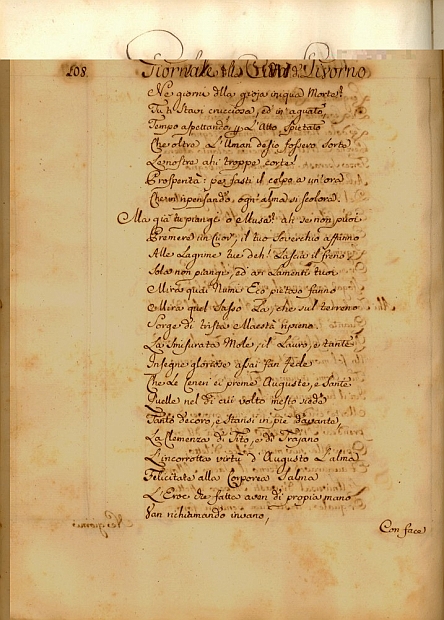 208. Giornale della Città di Livorno
Ne giorni dlla gioja iniqua Morte!
Tu ti stavi crucciosa, ed in aguato,
Tempo aspettando, p l'Atto spietato
Che oltra l'Uman desio fossero sorte
Le nostre ahi troppe corte!
Prosperità: per farti il colpo a un ora
Che in ripensando, ogn'alma si scolora.
Ma già tu piange o Musa! ah se non puoi
Premere in Cuor, il tuo soverchio affanno
Alle Lagrime tue deh! Lascia il freno,
Sola non piange, ed a i Lamenti tuoi
Mira quai Numi Eco pietoso fanno
Mira quel Sasso Là, che sul terreno
Sorge di trista Maestà ripieno.
La smisurata Mole, il Lauro, e tante
Insegne gloriose assai fan fede
Che Le Ceneri ei preme Auguste, e Sante
Quelle nel di cui volto mesto siede
Tanto decoro, e stansi in piè davante,
La Clemenza di Tito, e di Trajano
L'incorrotta virtù d'Augusto L'alma
Felicitate alla Corporea Salma
L'Eroe che fatta aven di propia mano
Van richiamando invano,
Con face